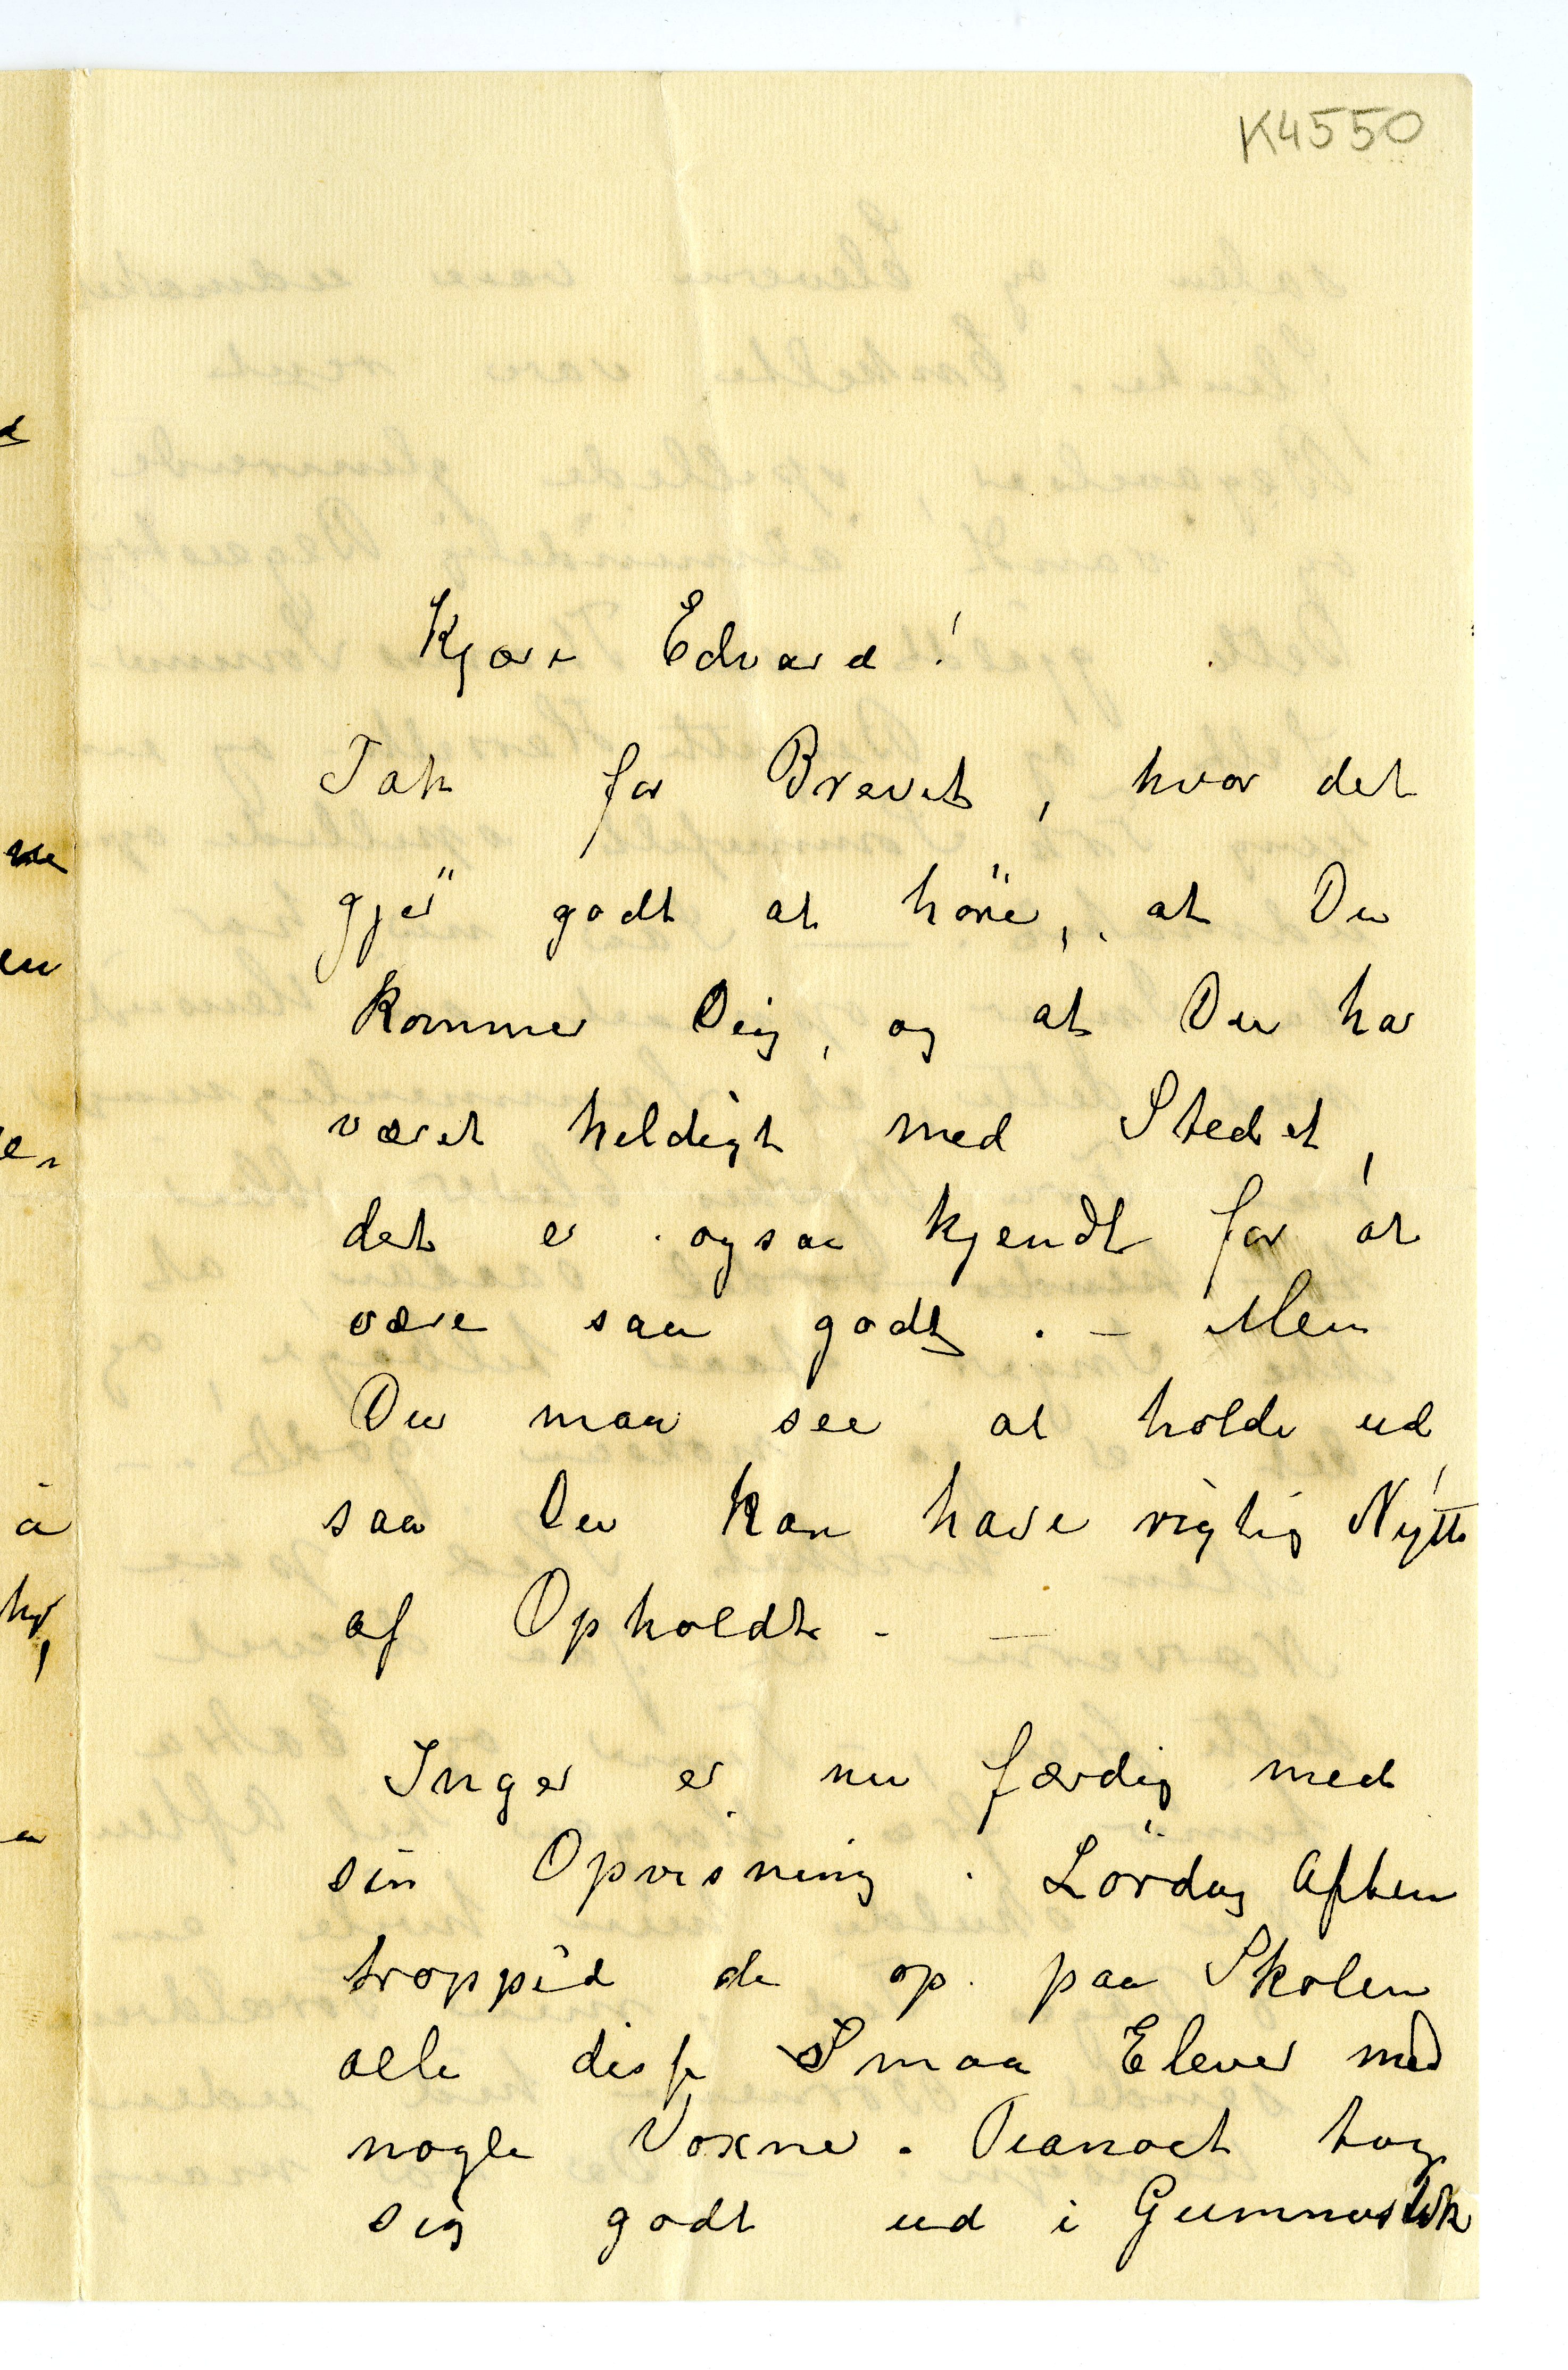 K4550
Kjære Edvard!
Tak for Brevet, hvor det
gjør godt at höre, at Du
kommer Dig, og at Du har
været heldigt med Stedet,
det er ogsaa kjendt for at
være saa godt. – Men
Du maa see at holde ud
saa Du kan have rigtig Nytte
af Opholdt. –
Inger er nu færdig med
sin Opvisning. Lördag Aften
tropped de op paa Skolen
alle disse Smaa Elever med
nogle Voxne. Pianoet tog
sig godt ud i Gumnastik